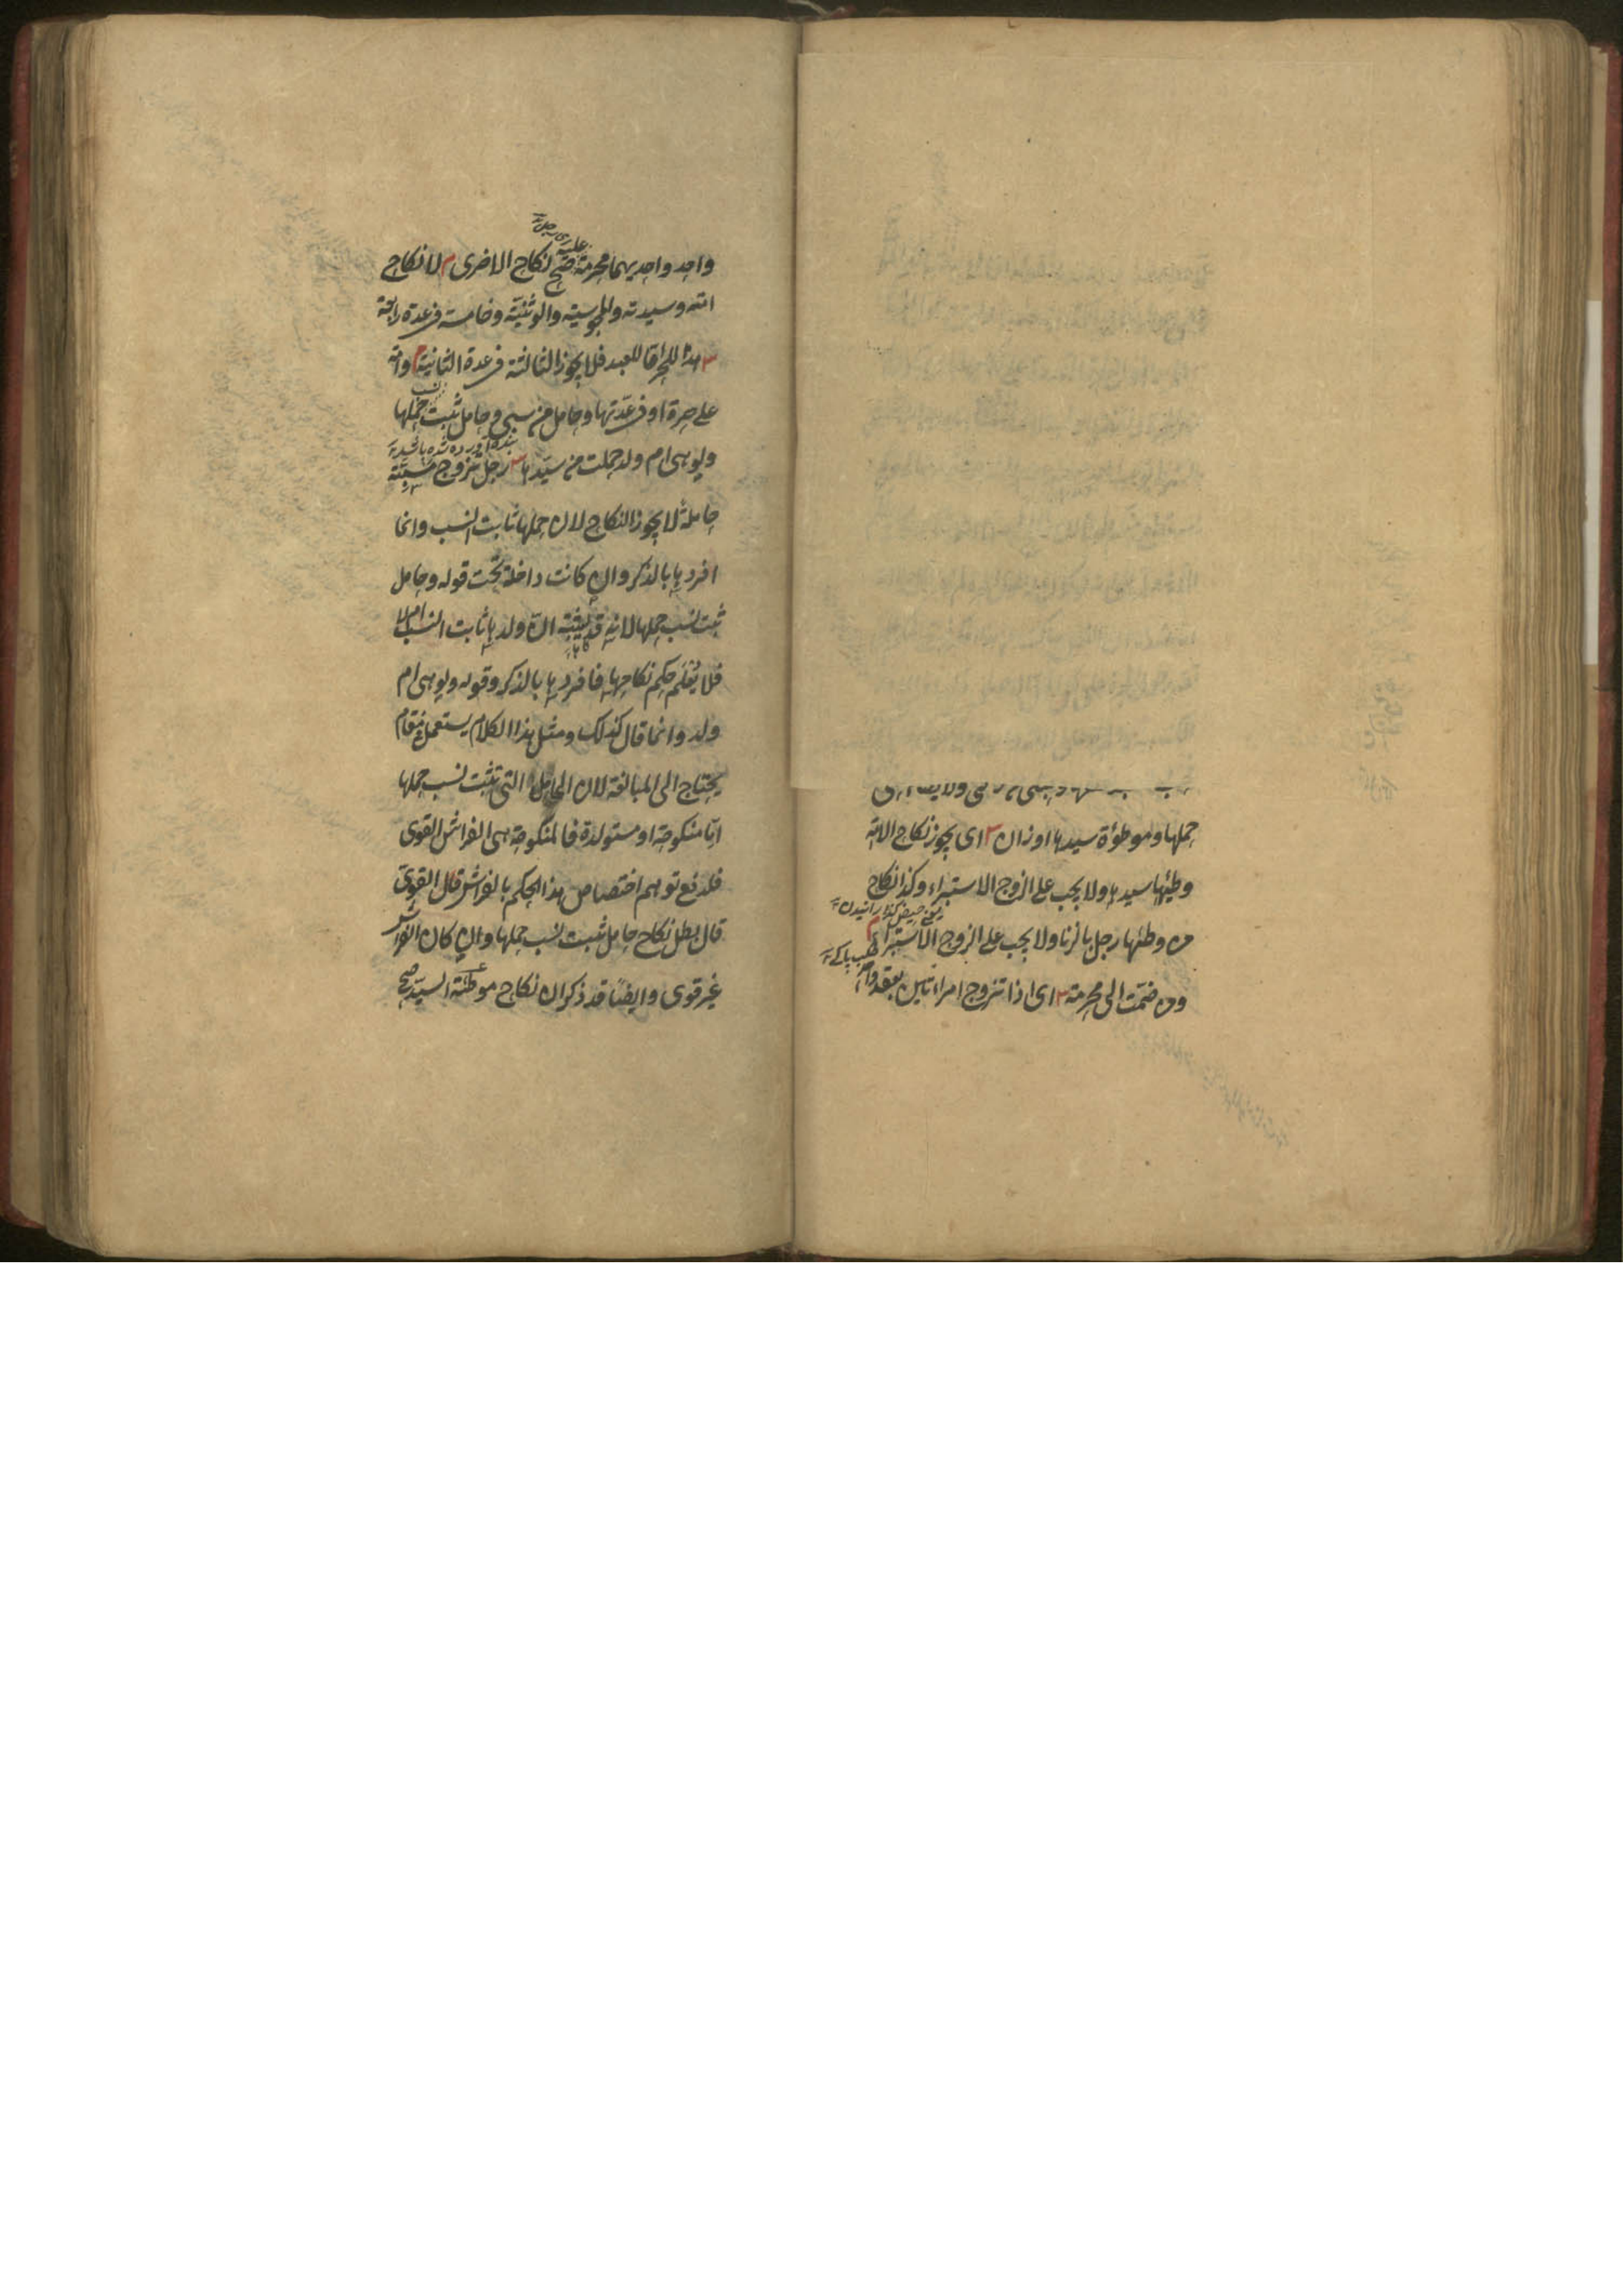 حملها وموطؤة سيدها او زان ش اى يجوز نكاح الامة
وطئها سيدها ولا يجب على الزوج الاستبراء وكذا نكاح
من وطئها رجل بالزنا ولا يجب على الزوج الاستبراء م
ومن ضمت الى محرمة ش اى اذا تزوج امراتين بعقد
واحد واحديهما محرمة عليه صح نكاح الاخرى م لا نكاح
امته وسيدته والمجوسية والوثنية وخامسة فى عدة رابعة
ش هذا للحر اما للعبد فلا يجوز الثالثة فى عدة الثانية م وامة
على حرة او فى عدتها وحامل من سبى وحامل ثبت نسب حملها
ولو هى ام ولد حملت من سيدها ش رجل تزوج مسبية
حاملة لا يجوز النكاح لان حملها ثابت النسب وانما
افردها بالذكر وان كانت داخلة تحت قوله وحامل
ثبت نسب حملها لانه قد يشتبه ان ولدها ثابت النسب ام لا
فلا يعلم حكم نكاحها فافردها بالذكر وقوله ولو هى ام
ولد وانما قال كذلك ومثل هذا الكلام يستعمل فى مقام
يحتاج الى المبالغة لان الحامل التى تثبت نسب حملها
اما منكوحة او مستولدة فالمنكوحة هى الفراش القوى
فلدفع توهم اختصاص هذا الحكم بالفراش القوى
قال بطل نكاح حامل ثبت نسب حملها وان كان الفراش
غير قوى وايضا قد ذكر ان نكاح موطئة السيد صح